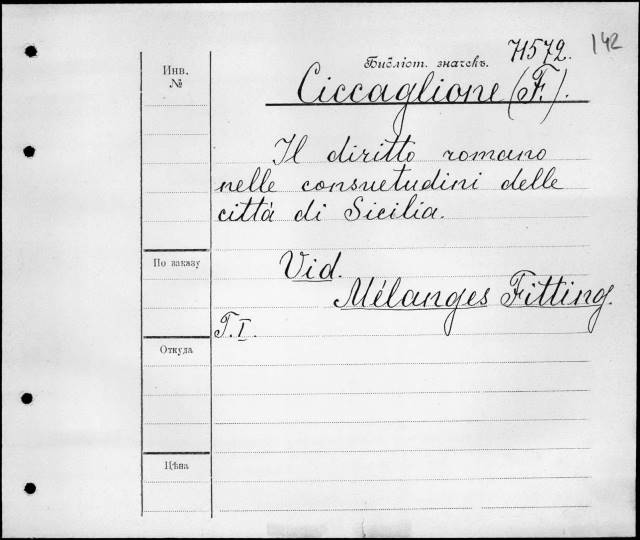 142
Библіот. значекъ. 71572.
Инв.
№
Ciccaglione (F.).
Il diritto romano
nelle consuetudini delle
città di Sicilia.
По заказу
Vid.
Mélanges Fitting.
T. I.
Откуда
Цѣна